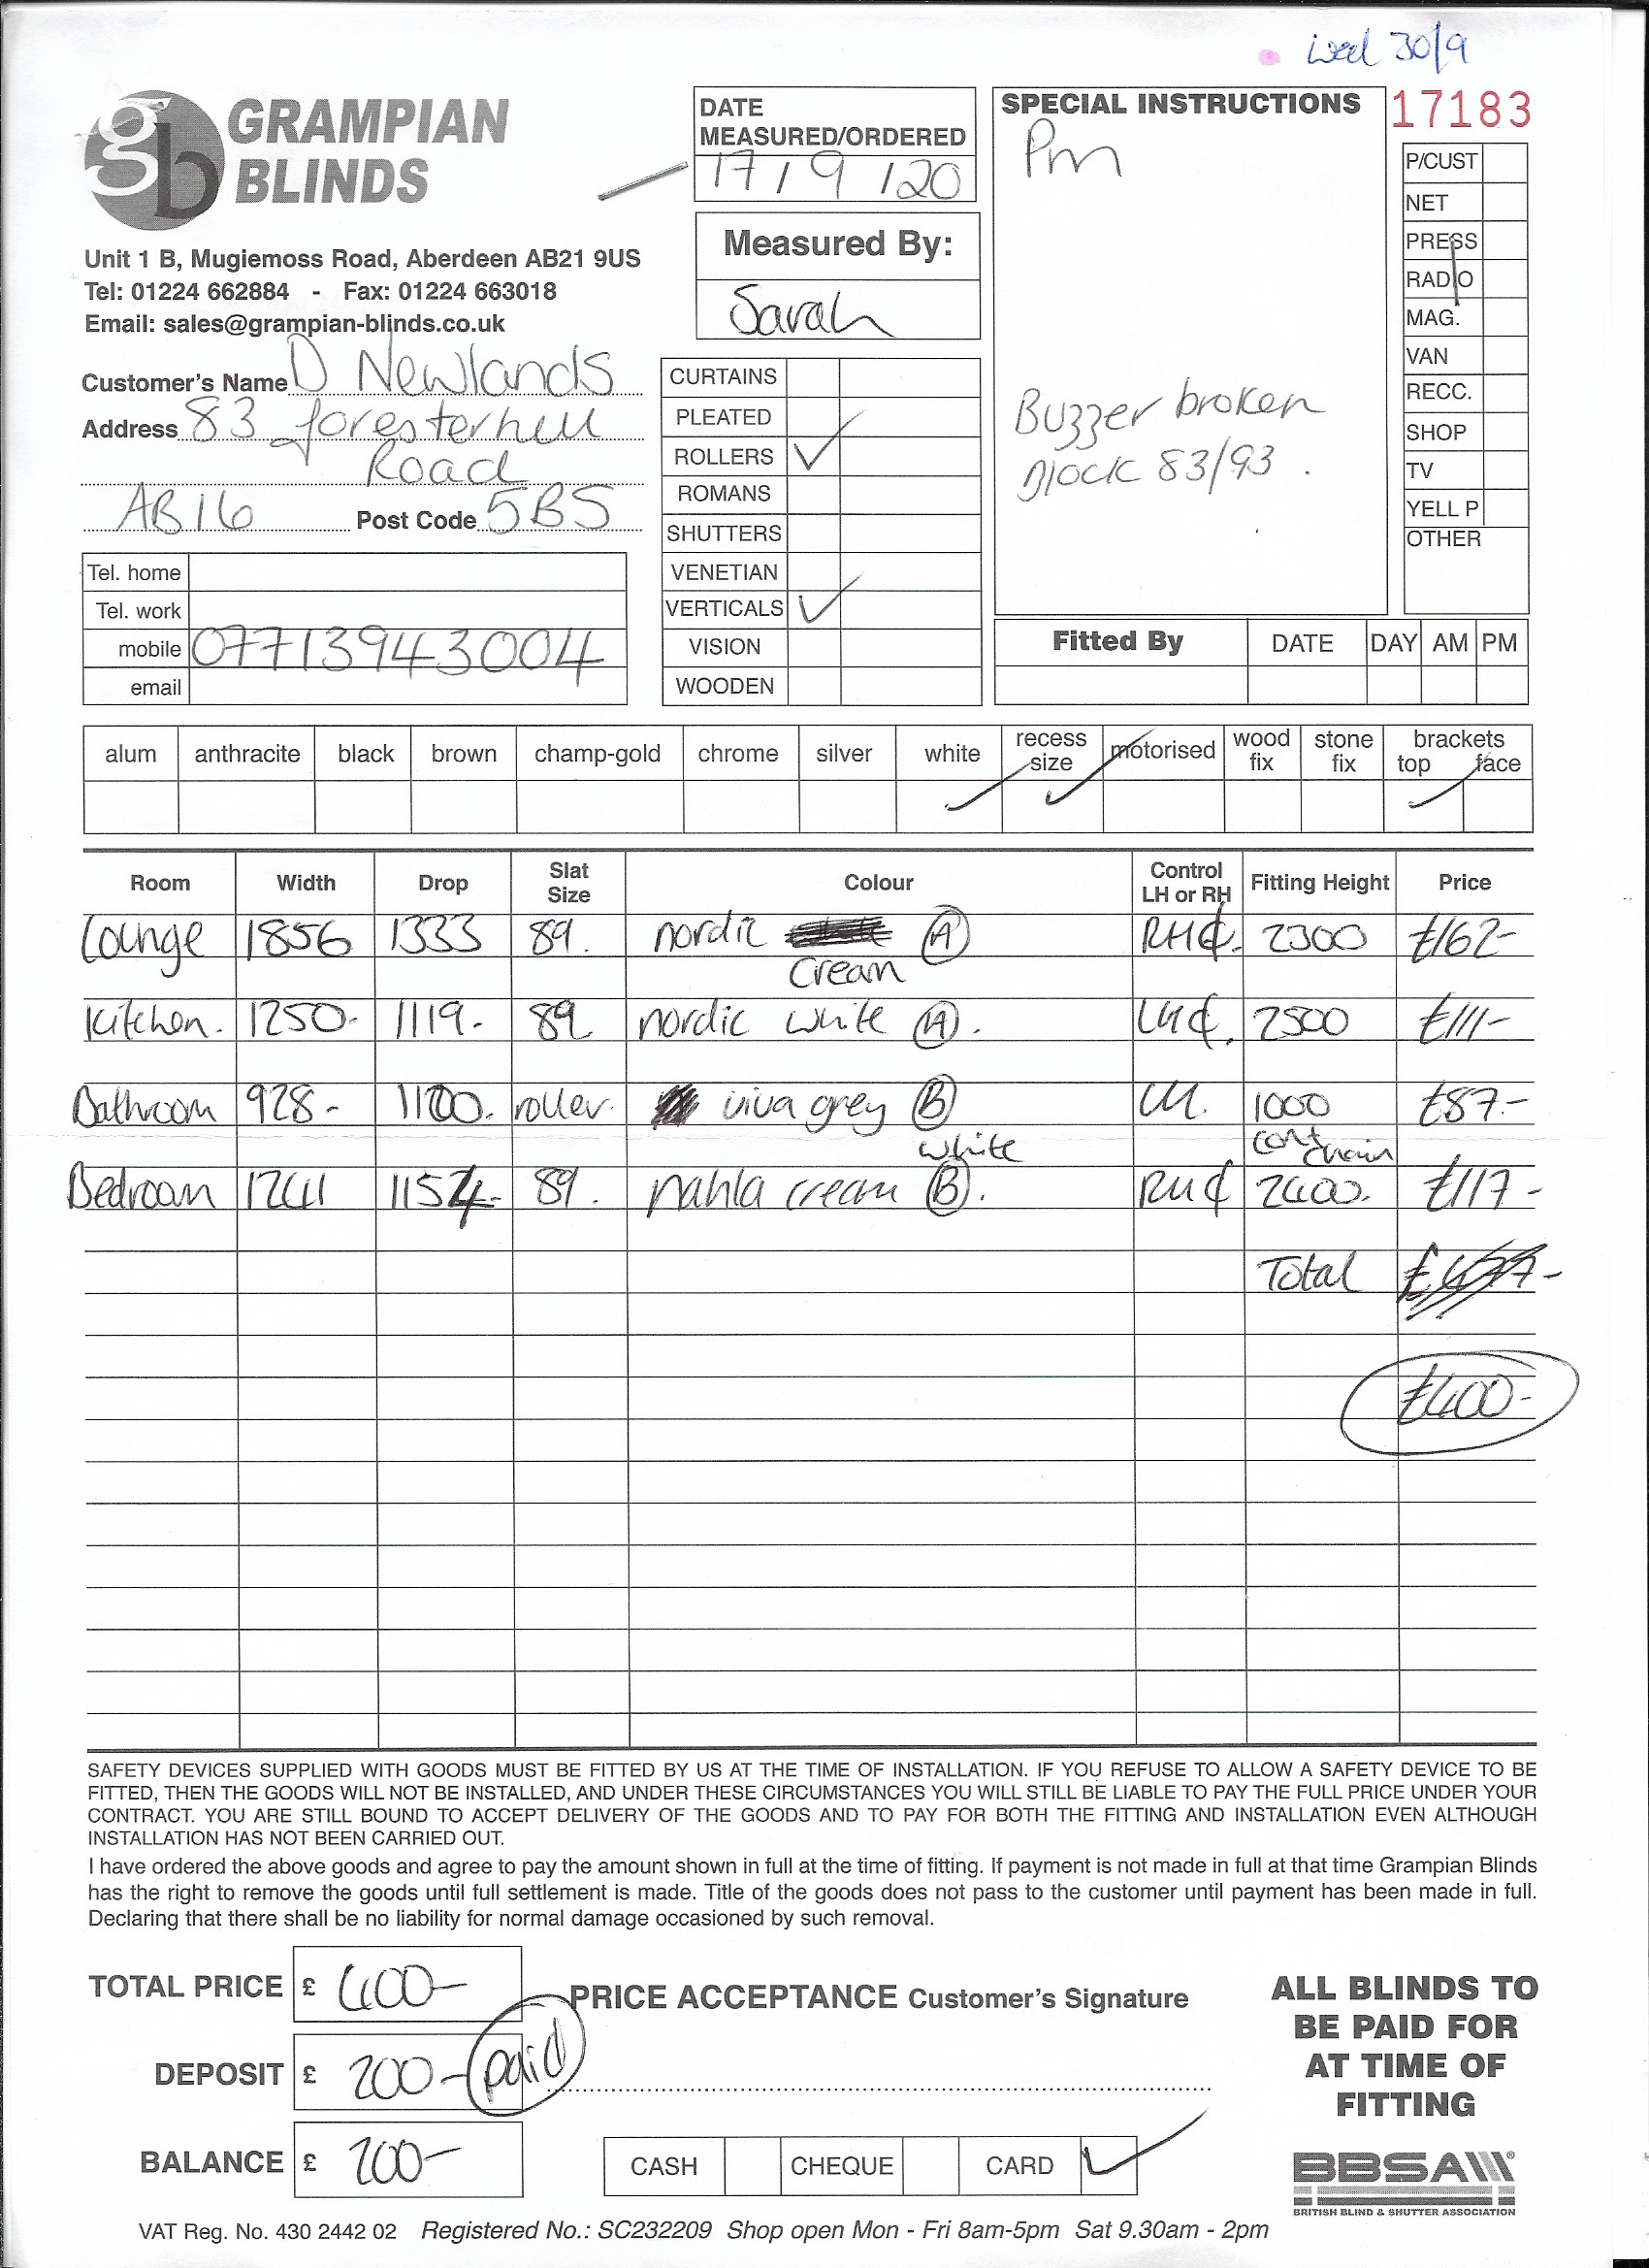 Wed 30/9
GRAMPIAN
BLINDS
Unit 1 B, Mugiemoss Road, Aberdeen AB21 9US
Tel: 01224 662884 - Fax: 01224 663018
Email: sales@grampian-blinds.co.uk
DATE
MEASURED/ORDERED
17/9/20
Measured By:
Sarah
SPECIAL INSTRUCTIONS
Pm
Buzzer broken
Block 83/93.
17183
P/CUST
NET
PRESS
RADIO
MAG.
VAN
RECC.
SHOP
TV
YELL P
OTHER
Customer's Name D Newlands
Address 83 foresterhill
Road
AB16 Post Code 5BS
Tel. home
Tel. work
mobile 07713943004
email
CURTAINS
PLEATED
ROLLERS ✓
ROMANS
SHUTTERS
VENETIAN
VERTICALS ✓
VISION
WOODEN
Fitted By DATE DAY AM PM
alum anthracite black brown champ-gold chrome silver white recess size motorised wood fix stone fix brackets top face
Room Width Drop Slat Size Colour Control LH or RH Fitting Height Price
Lounge 1856 1333 89. nordic (A) RH¢. 2300 £162-
Cream
Kitchen. 1250- 1119- 89 nordic white (A). LH¢. 2500 £111-
Bathroom 928- 1100. roller. viva grey (B) LH. 1000 £87.-
white cont chain
Bedroom 1241 1154- 89. nahla cream (B). RH¢ 2400. £117-
Total £477-
£400-
SAFETY DEVICES SUPPLIED WITH GOODS MUST BE FITTED BY US AT THE TIME OF INSTALLATION. IF YOU REFUSE TO ALLOW A SAFETY DEVICE TO BE
FITTED, THEN THE GOODS WILL NOT BE INSTALLED, AND UNDER THESE CIRCUMSTANCES YOU WILL STILL BE LIABLE TO PAY THE FULL PRICE UNDER YOUR
CONTRACT. YOU ARE STILL BOUND TO ACCEPT DELIVERY OF THE GOODS AND TO PAY FOR BOTH THE FITTING AND INSTALLATION EVEN ALTHOUGH
INSTALLATION HAS NOT BEEN CARRIED OUT.
I have ordered the above goods and agree to pay the amount shown in full at the time of fitting. If payment is not made in full at that time Grampian Blinds
has the right to remove the goods until full settlement is made. Title of the goods does not pass to the customer until payment has been made in full.
Declaring that there shall be no liability for normal damage occasioned by such removal.
TOTAL PRICE £ 400-
DEPOSIT £ 200- paid
BALANCE £ 200-
PRICE ACCEPTANCE Customer's Signature
CASH CHEQUE CARD ✓
ALL BLINDS TO
BE PAID FOR
AT TIME OF
FITTING
BBSA
BRITISH BLIND & SHUTTER ASSOCIATION
VAT Reg. No. 430 2442 02 Registered No.: SC232209 Shop open Mon - Fri 8am-5pm Sat 9.30am - 2pm